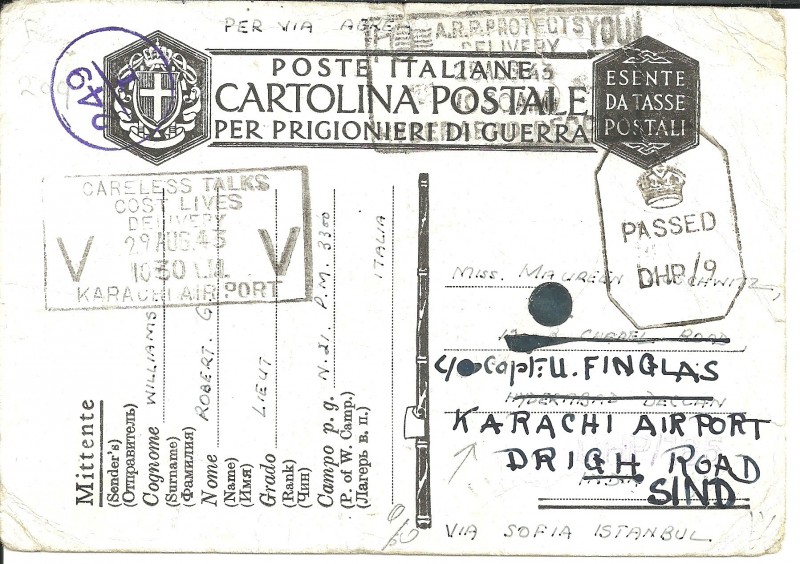 PER VIA AEREA
A.R.P. PROTECTS YOU
DELIVERY
POSTE ITALIANE
CARTOLINA POSTALE
PER PRIGIONIERI DI GUERRA
ESENTE
DA TASSE
POSTALI
CARELESS TALKS
COST LIVES
DELIVERY
29 AUG. 43
1030 A.M.
KARACHI AIR PORT
V V
PASSED
DHP/9
Mittente
(Sender's)
(Отправитель)
Cognome WILLIAMS
(Surname)
(Фамилия)
Nome ROBERT. G
(Name)
(Имя)
Grado LIEUT
(Rank)
(Чин)
Campo p. g. N. 21. P.M. 3300
(P. of W. Camp.)
(Лагерь в. п.)
ITALIA
MISS. MAUREEN
CHAPEL ROAD
c/o Capt: U. FINGLAS
HYDERABAD DECCAN
KARACHI AIRPORT
DRIGH ROAD
SIND
VIA SOFIA ISTANBUL.